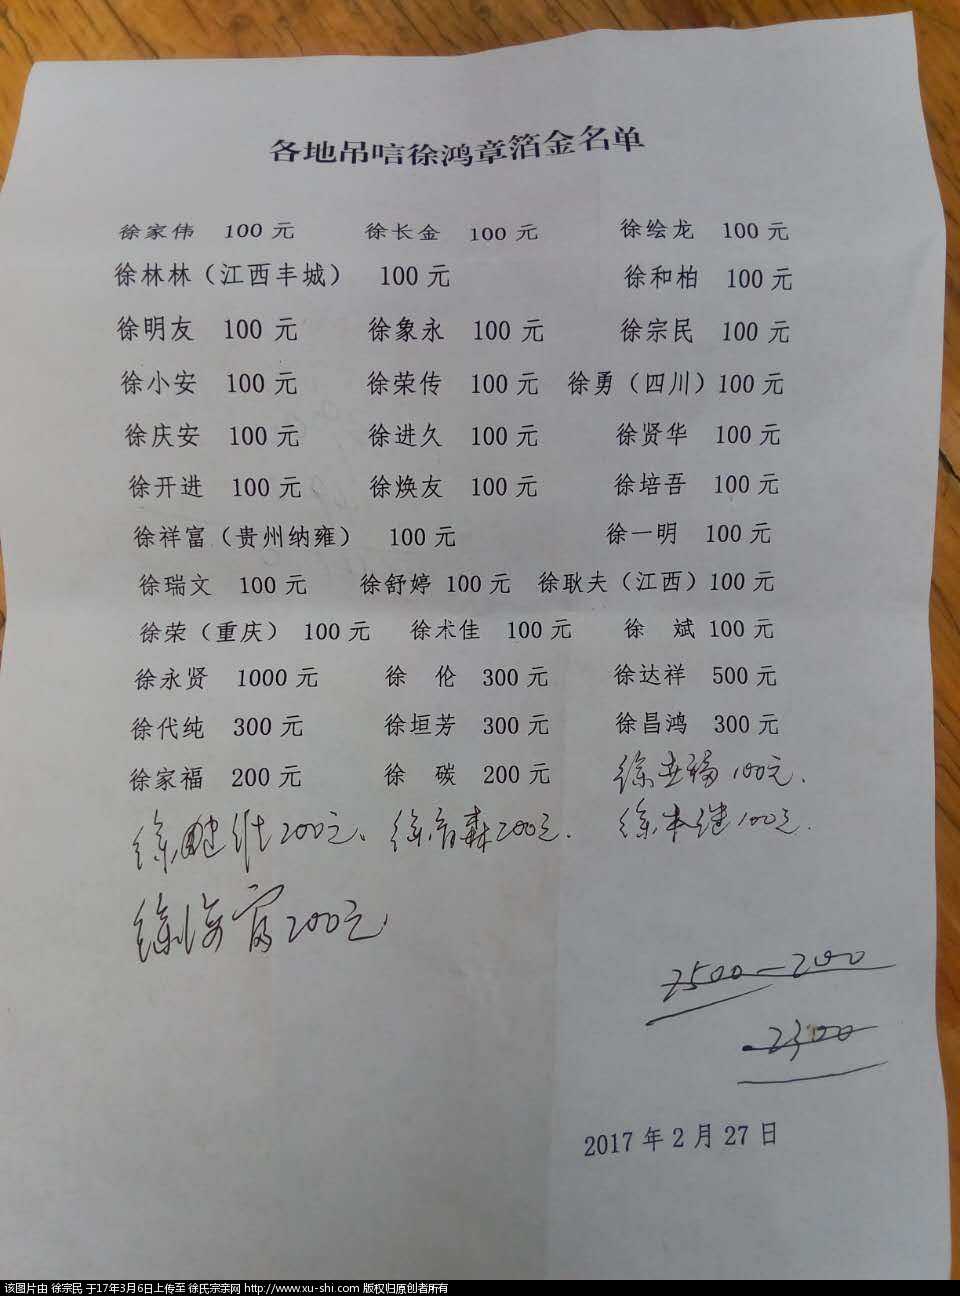 各地吊唁徐鸿章箔金名单
徐家伟 100元 徐长金 100元 徐绘龙 100元
徐林林（江西丰城） 100元 徐和柏 100元
徐明友 100元 徐象永 100元 徐宗民 100元
徐小安 100元 徐荣传 100元 徐勇（四川）100元
徐庆安 100元 徐进久 100元 徐贤华 100元
徐开进 100元 徐焕友 100元 徐培吾 100元
徐祥富（贵州纳雍） 100元 徐一明 100元
徐瑞文 100元 徐舒婷 100元 徐耿夫（江西）100元
徐荣（重庆） 100元 徐术佳 100元 徐 斌 100元
徐永贤 1000元 徐 伦 300元 徐达祥 500元
徐代纯 300元 徐垣芳 300元 徐昌鸿 300元
徐家福 200元 徐 碳 200元 徐 福 100元.
徐 200元、徐 森200元. 徐本继100元.
徐海富200元
2500-200
2300
2017年2月27日
该图片由 徐宗民 于17年3月6日上传至 徐氏宗亲网 http://www.xu-shi.com 版权归原创者所有